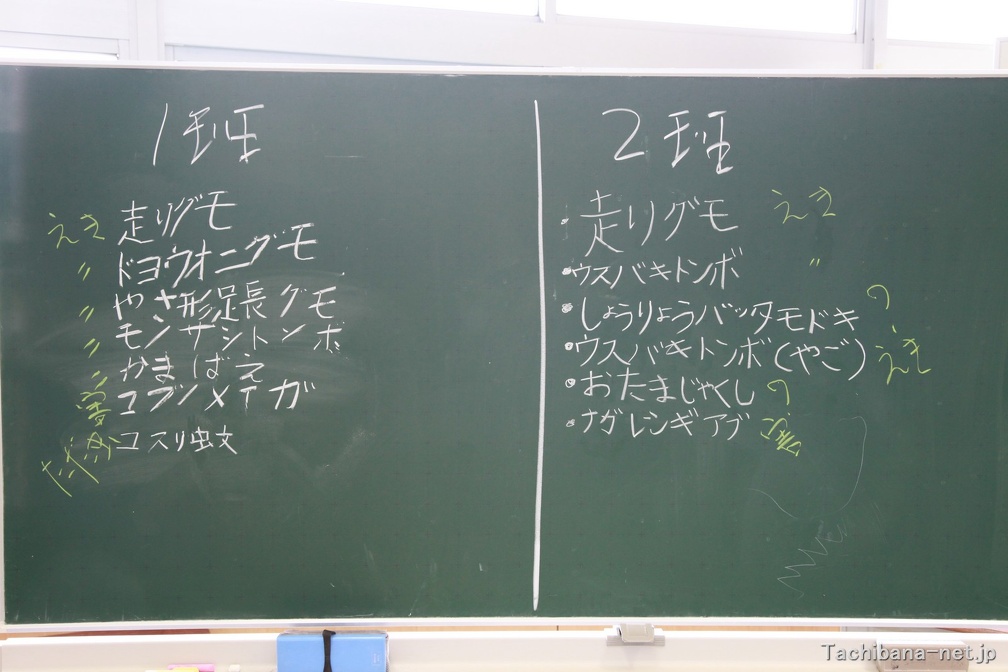 1班
えき 走りグモ
〃 ドヨウオニグモ
〃 やさ形足長グモ
〃 モンサシトンボ
かまばえ
コブンメイガ
ユスリ蚊
2班
・走りグモ えき
・ウスバキトンボ 〃
・しょうりょうバッタモドキ の
・ウスバキトンボ(やご) えき
・おたまじゃくし の
・ナガレシギアブ
Tachibana-net.jp